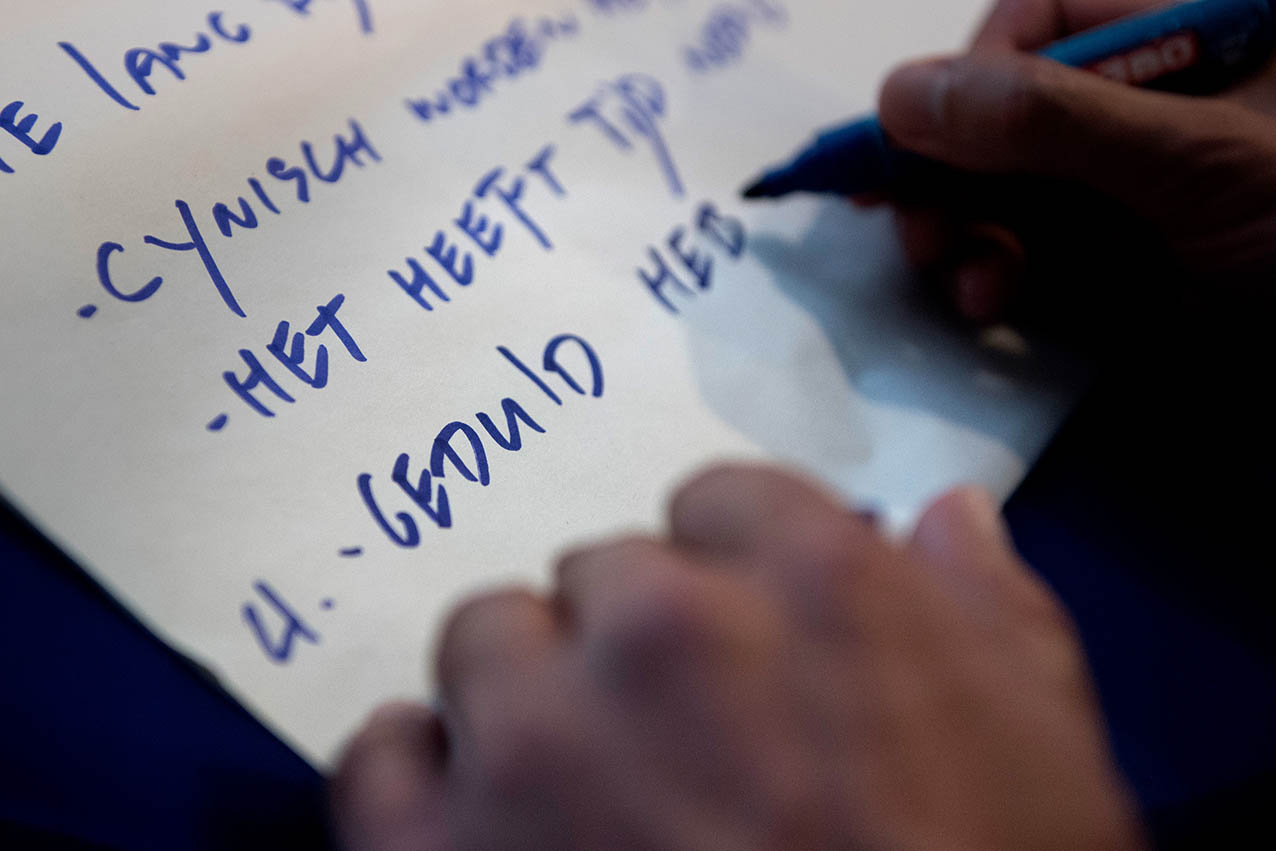 LANG
·CYNISCH WORDEN
·HET HEEFT TIJD NODIG
·GEDULD HEB
4.